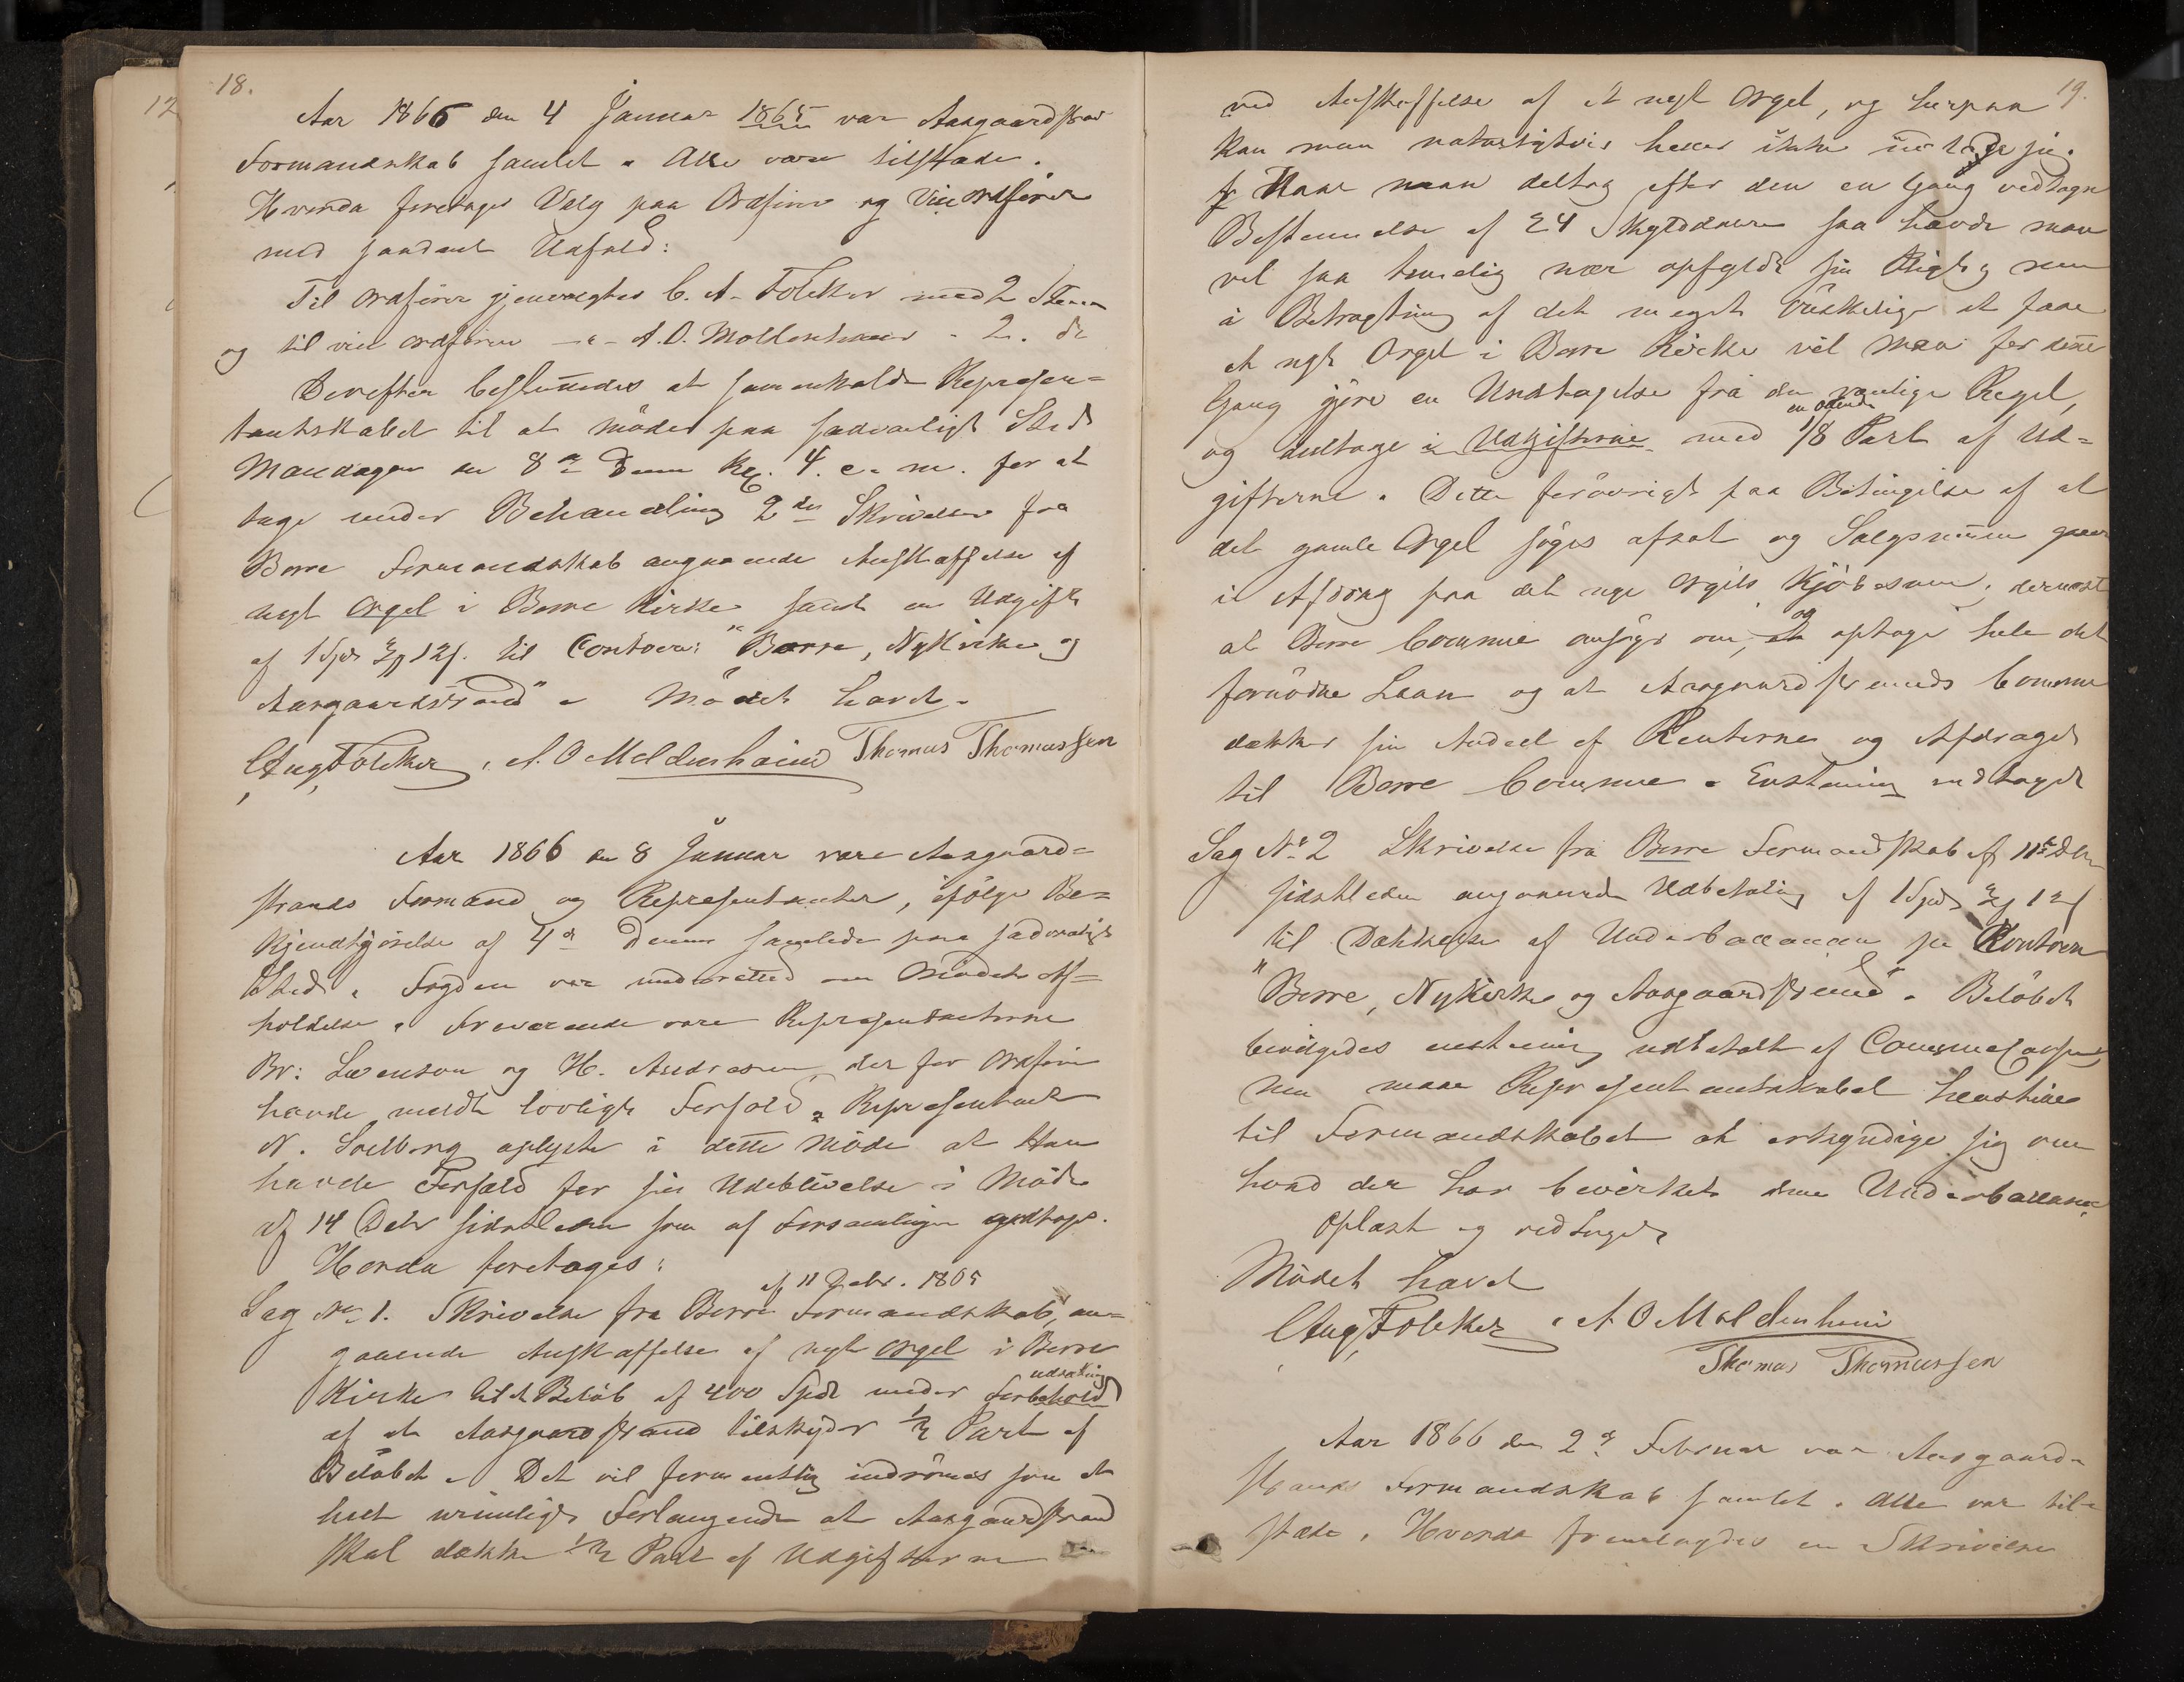 18.
Aar 1866 den 4 Januar 1865 var Aasgaardstrands
Formandskab samlet. Alle vare tilstæde.
Hvorda foretoges Valg paa Ordfører og Viceordfører
med saadant Udfald:
Til Ordfører gjenvalgtes C. A. Foleker med 2 Stem
og til vice ordfører —"— A. O. Moldenhauer - 2. do
Derefter besluttedes at sammenkalde Represen=
tantskabet til at möde paa sædvanligt Sted
Mandagen den 8de Dennes Kl. 4. e. m. for at
tage under Behandling 2de Skrivelser fra
Borre Formandskab angaaende Anskaffelse af
nyt Orgel i Borre Kirke samt en Udgift
af 1 Spd 12 s. til Contoen: "Borre, Nykirke og
Aasgaardstrand". Mödet hævet.
CAugFoleker, A. O Moldenhauer Thomas Thomassen
Aar 1866 den 8 Januar vare Aasgaard=
strands Formænd og Representanter, ifölge Be=
kjendtgjörelse af 4de Dennes samlede paa sædvanligt
Sted. Fogden var underrettet om Mödets Af=
holdelse. Fraværende vare Representanterne
Br: Svenson og H. Andresen, der for Ordfører
havde meldt lovligt Forfald. Representant
N. Solberg oplyste i dette Möde at Han
havde Forfald for sin Udeblivelse i Möde
af 14 Debr sidstleden som af Forsamlingen godtoges.
Horda foretoges:
af 11 Debr. 1865
Sag No 1. Skrivelse fra Borre Formandskab, an=
gaaende Anskaffelse af nyt Orgel i Borre
Kirke til et Belöb af 400 Spd under Forbehold
af at Aasgaardstrand tilskyder 1/2 Part af
Belöbet. Det vil formentlig indrömmes som et
helt urimeligt Forlangende at Aasgaardstrand
skal dække 1/2 Part af Udgifterne
19.
ved Anskaffelse af et nyt Orgel, og herpaa
kan man naturligtvis heller ikke indlade sig.
Naar man deltog efter den en Gang vedtagne
Bestemmelse af 24 Skylddaler saa havde man
vel saa temmelig nær opfyldt sin Pligt og men
i Betragtning af det meget önskelige at faae
et nyt Orgel i Borre Kirke vil man for denne
Gang gjöre en Undtagelse fra den vanlige Regel,
en ottende
og deeltage i Udgifterne med 1/8 Part af Ud=
gifterne. Dette forövrigt paa Betingelse af at
det gamle Orgel söges afsat og Salgsummen gaaer
i Afdrag paa det nye Orgels Kjöbesum; dernæst
at Borre Commune ansöger om, og optage hele det
fornödne Laan og at Aasgaardstrands Commune
dækker sin Andeel af Renterne og Afdraget
til Borre Commune. Enstemmig vedtaget
Sag No 2 Skrivelse fra Borre Formandskab af 11te Debr
sidstleden angaaende Udbetaling af 1 Spd 12 s
til Dækkelse af Underballancen paa Kontoen
"Borre, Nykirke og Aasgaardstrand". Belöbet
bevilgedes enstemmig udbetalt af Communecassen
men maae Representantskabet henstille
til Formandskabet at erkyndige sig om
hvad der har bevirket denne Underballance
Oplæst og vedtaget
Mödet hævet
CAugFoleker. A O Moldenhauer
Thomas Thomassen
Aar 1866 den 2de Februar var Aasgaard=
strands Formandskab samlet. Alle var til=
stæde. Hvorda fremlagdes en Skrivelse